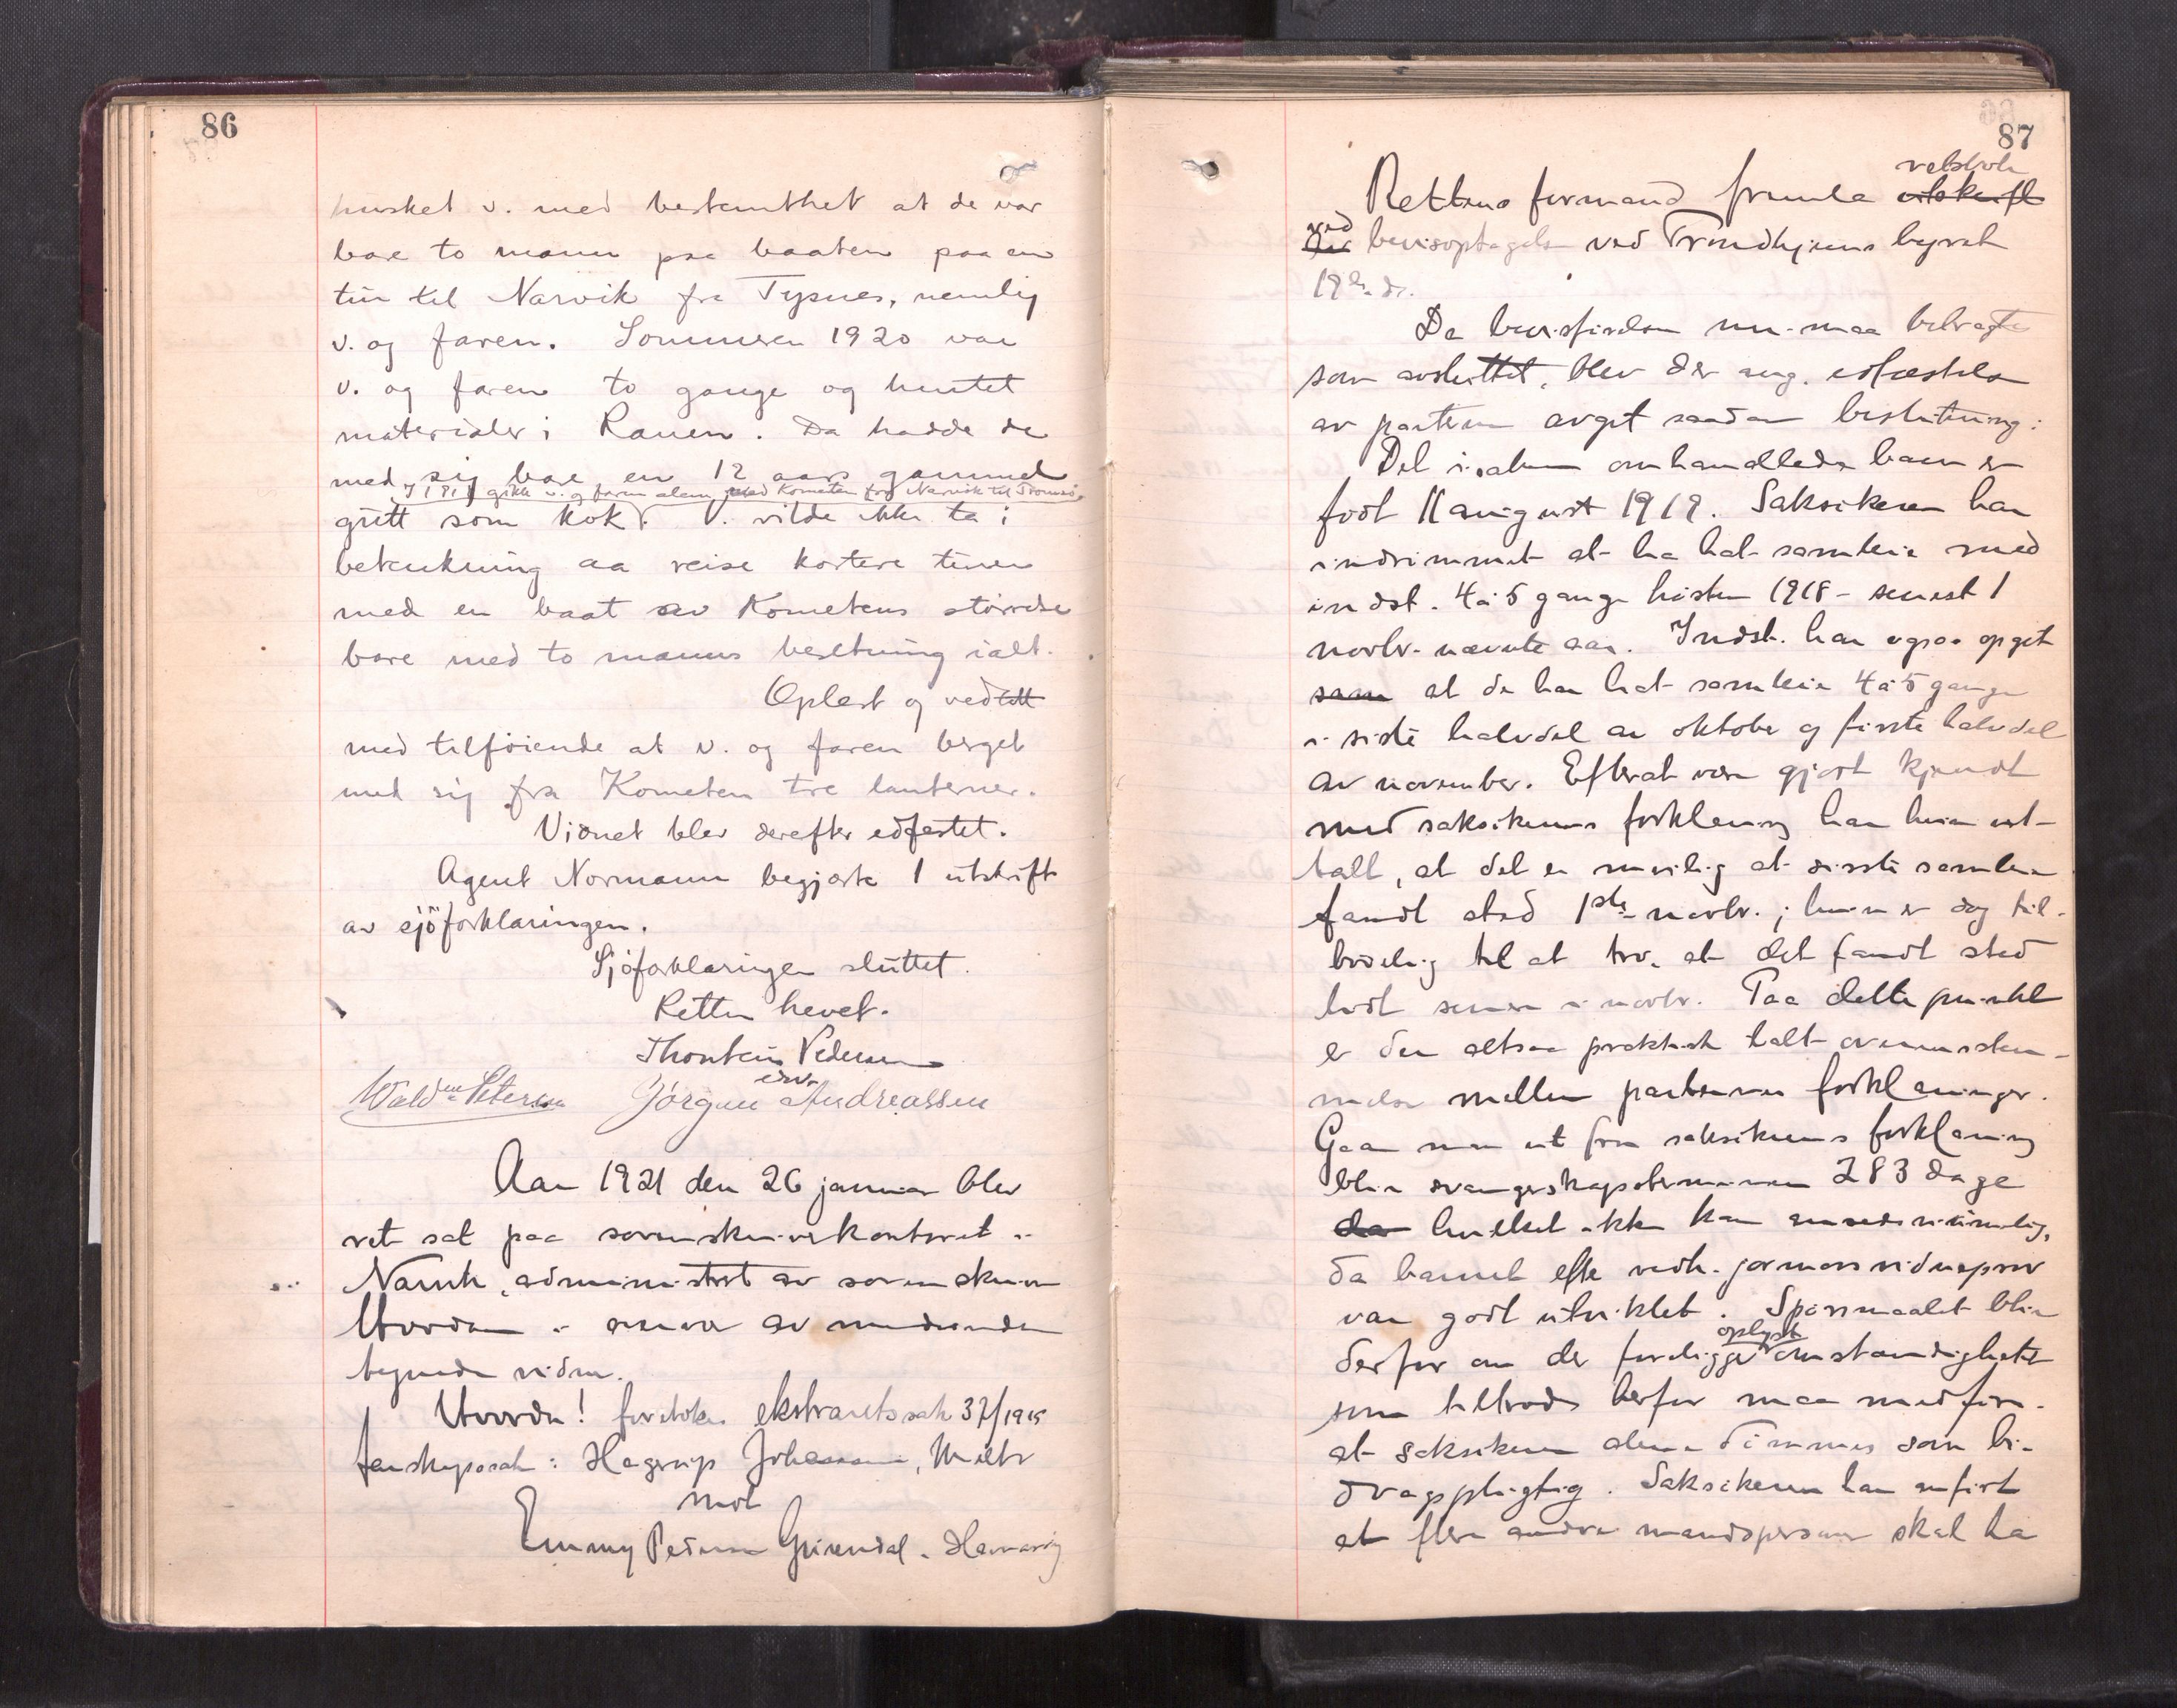 86
husket v. med bestemthet at de var
bare to mann paa baaten paa en
tur til Narvik fra Tysnes, nemlig
v. og faren. Sommeren 1920 var
v. og faren to gange og hentet
materialer i Ranen. Da hadde de
med sig bare en 12 aars gammel
I 1919 gikk v. og faren alene med Kometen fra Narvik til Tromsø.
gutt som kok. V. vilde ikke ta i
betenkning aa reise kortere turer
med en baat av Kometens størrelse
bare med to manns besetning ialt.
Oplest og vedtatt
med tilføiende at v. og faren berget
med sig fra Kometen tre lanterner.
Vidnet blev derefter edfestet.
Agent Normann begjærte 1 utskrift
av sjöforklaringen.
Sjøforklaringen sluttet.
Retten hevet.
Thorstein Pedersen
Wald. Petersen Jörgen edv. Andreassen
Aar 1921 den 26 januar blev
ret sat paa sorenskriverkontoret i
Narvik, administrert av sorenskriver
i nærvær av undertegnede
vidner.
foretokes ekstraretssak 37/1915
farskapssak: Hagerup Johansen,
mot
Emmy Pedersen Grirendal, Hamarøy
87
Rettens formand fremla retsbok
utskrift
ved
der bevisoptagelse ved Trondhjems byret
19 ds.
Da bevisførslen nu maa betragtes
som avsluttet, blev der ang. edfæstelse
av partene avgit saadan beslutning:
Det i saken omhandlede barn er
født 11 august 1919. Saksøkeren har
indrømmet at ha hat samleie med
indst. 4 à 5 gange høsten 1918 - senest 1
novbr. nævnte aar. Indst. har ogsaa opgit
som at de har hat samleie 4 à 5 gange
i siste halvdel av oktober og første halvdel
av november. Efterat være gjort kjendt
med saksøkerens forklaring har hun ut-
talt, at det er mulig at siste samleie
fandt sted 1ste novbr.; hun er dog til-
bøielig til at tro, at det fandt sted
litt senere i novbr. Paa dette punkt
er der altsaa praktisk talt overensstem-
melse mellem parternes forklaringer.
Gaar man ut fra saksøkerens forklaring
blir svangerskapsterminen 283 dage
da hvilket ikke kan ansees urimelig,
da barnet efter vedk. jormors vidneprov
var godt utviklet. Spørsmaalet blir
oplyst
derfor om der foreligger omstændigheter
som tiltrods herfor maa medføre
at saksøkeren alene dømmes som bi-
dragspligtig. Saksøkeren har anført
at flere andre mandspersoner skal ha